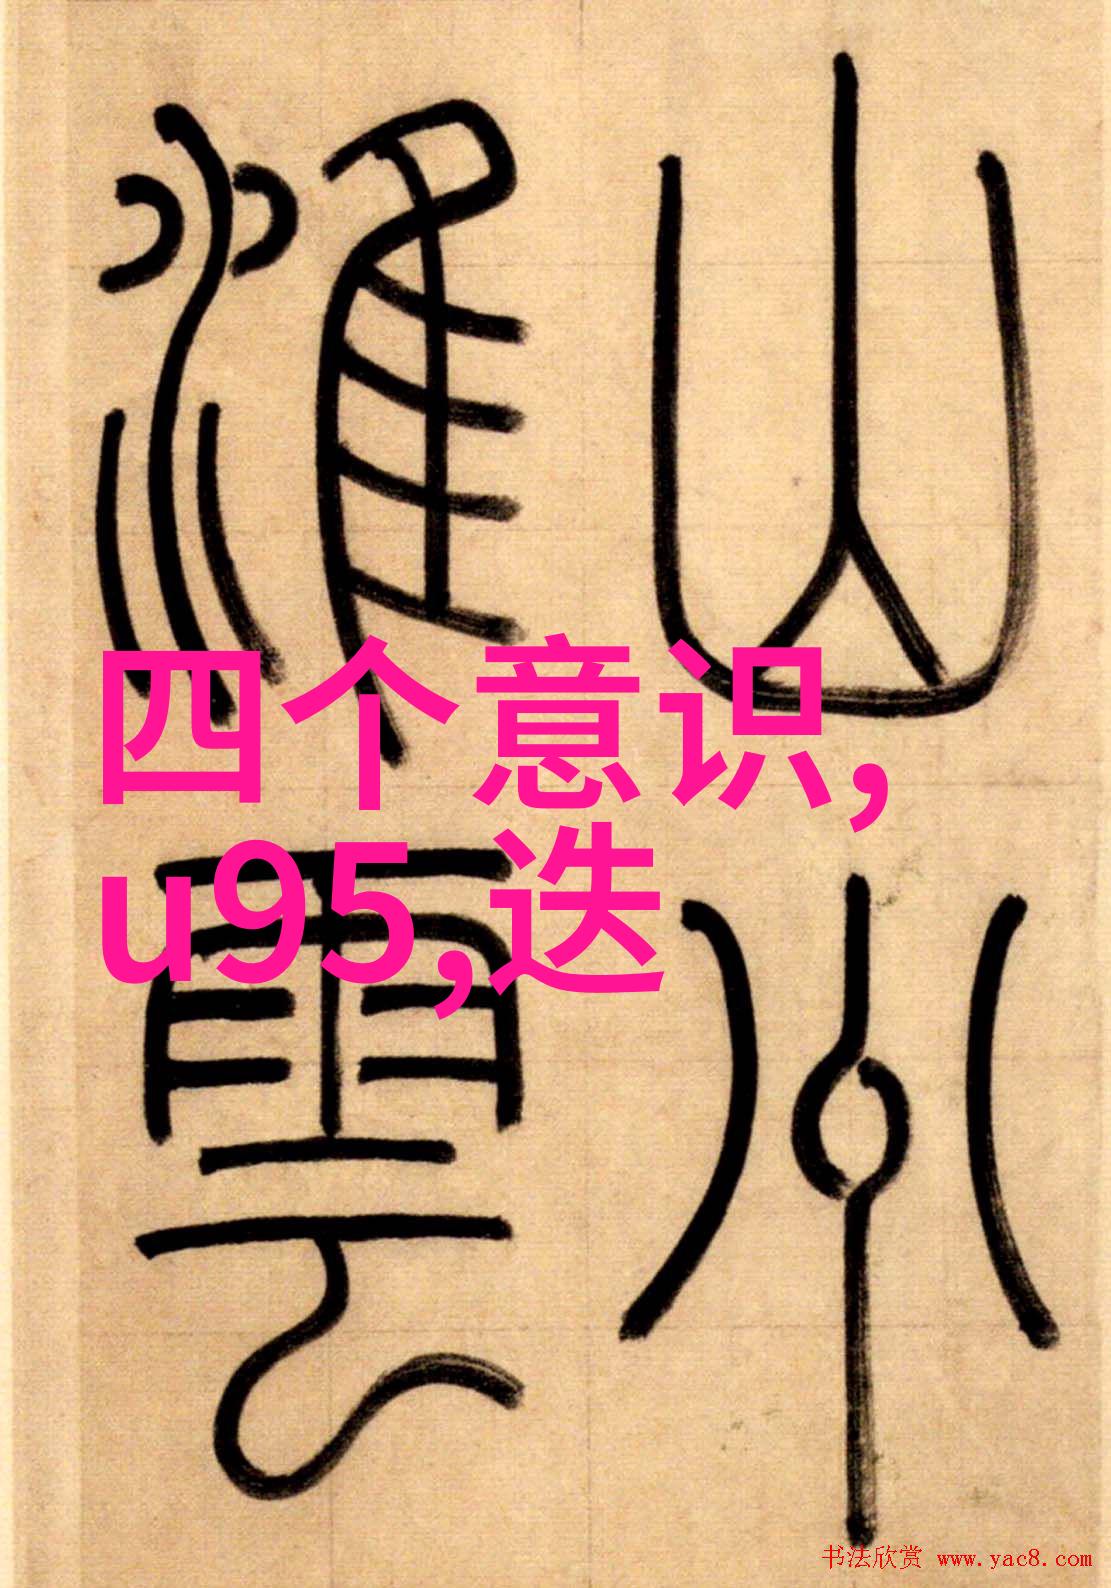 山州
淮雲
四个意识,
u95,迭
书法欣赏 www.yac8.com